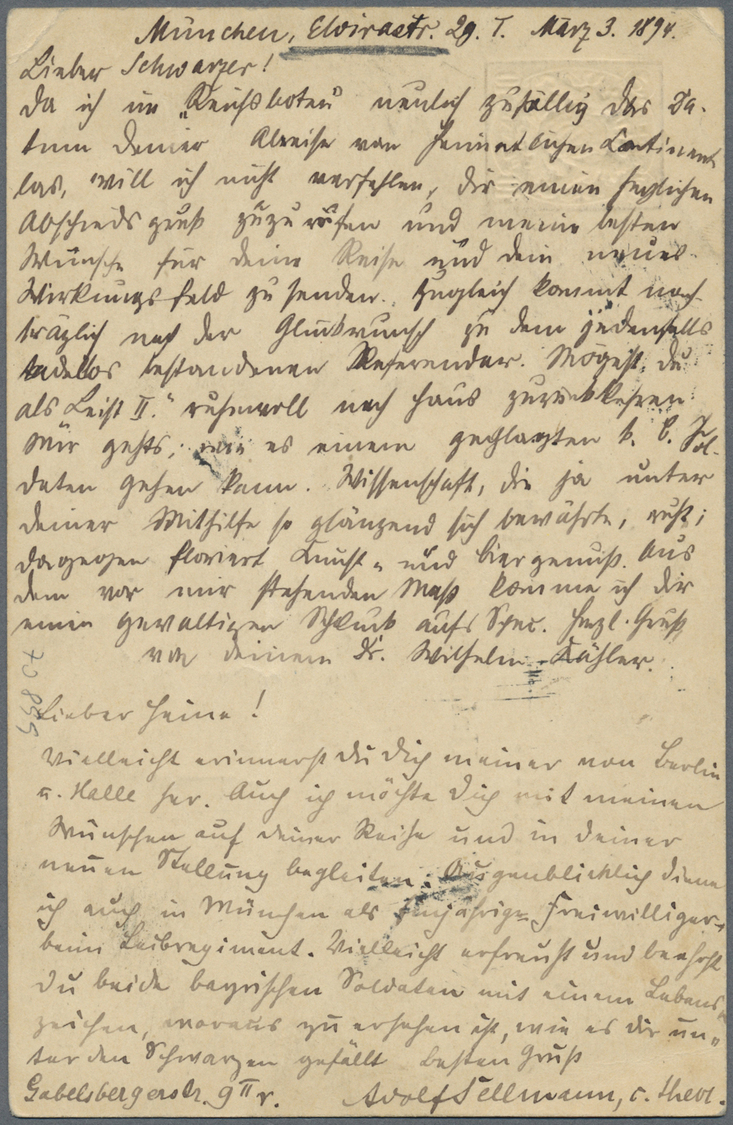 München, Elvirastr. 29. I. März 3. 1894.
Lieber Schwarzer!
Da ich im „Reichsboten" neulich zufällig das Da-
tum deiner Abreise vom heimatlichen Continent
las, will ich nicht verfehlen, dir einen herzlichen
Abschiedsgruß zuzurufen und meine besten
Wünsche für deine Reise und dein neues
Wirkungsfeld zu senden. Zugleich kommt nach-
träglich noch der Glückwunsch zu dem jedenfalls
tadellos bestandenen Referendar. Mögest du
als Leist II." ruhmvoll nach Haus zurückkehren.
Mir gehts, wie es einem geplagten k. b. Sol-
daten gehen kann. Wissenschaft, die ja unter
deiner Mithilfe so glänzend sich bewährte, ruht;
dagegen floriert Kunst- und Biergenuß. Aus
dem vor mir stehenden Maß komme ich dir
einen gewaltigen Schluck aufs Spez. Herzl. Gruß
von deinem Dr. Wilhelm Kähler.
Lieber Heine!
Vielleicht erinnerst du dich meiner von Berlin
u. Halle her. Auch ich möchte dich mit meinen
Wünschen auf deiner Reise und in deiner
neuen Stellung begleiten. Augenblicklich diene
ich auch in München als Einjährig-Freiwilliger
beim Leibregiment. Vielleicht erfreust und beehrst
du beide bayrischen Soldaten mit einem Lebens-
zeichen, woraus zu ersehen ist, wie es dir un-
ter den Schwarzen gefällt. Besten Gruß
Gabelsbergerstr. 9 II r. Adolf Sellmann, c. theol.
70855